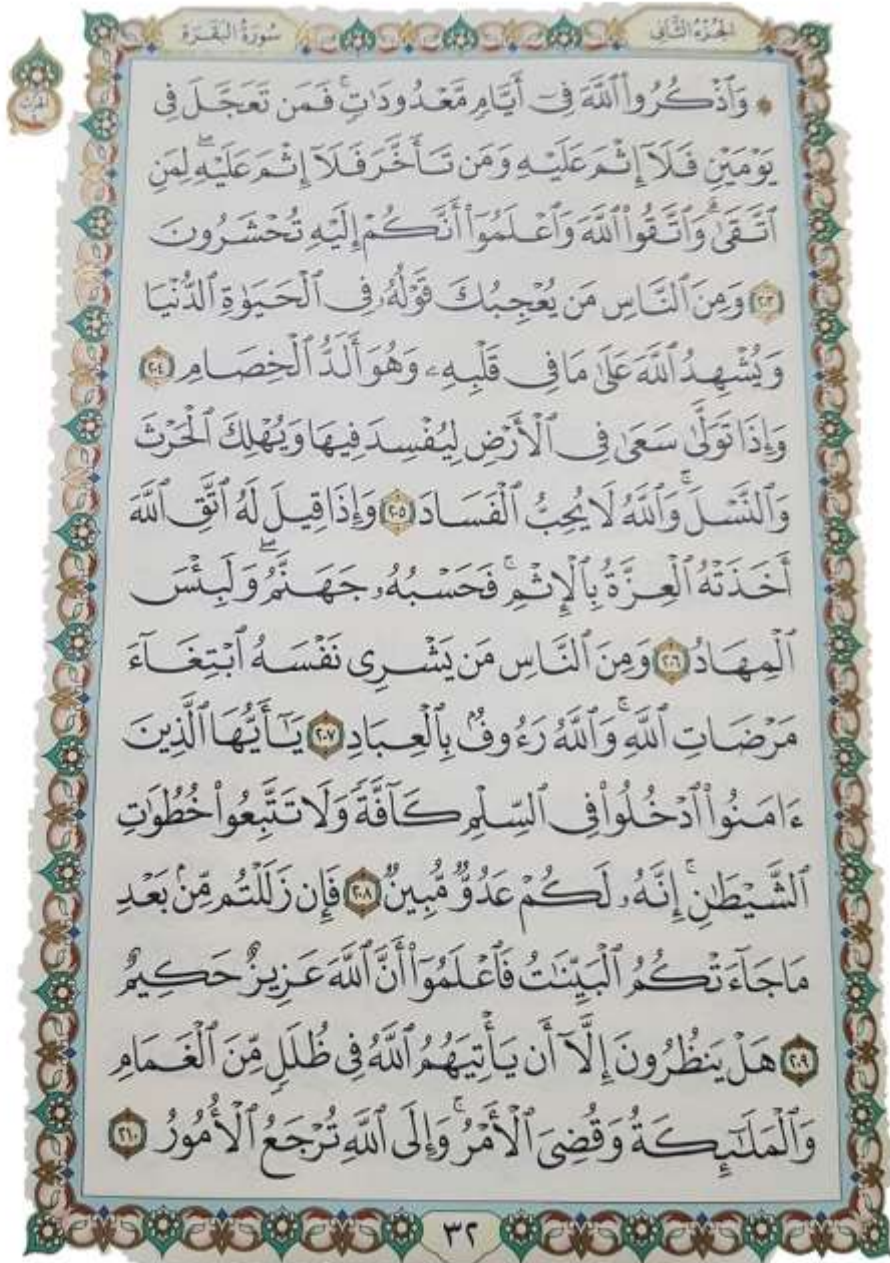 الجُزْءُ الثَّانِي
سُورَةُ البَقَرَةِ
۞ وَٱذْكُرُوا۟ ٱللَّهَ فِىٓ أَيَّامٍ مَّعْدُودَٰتٍ ۚ فَمَن تَعَجَّلَ فِى
يَوْمَيْنِ فَلَآ إِثْمَ عَلَيْهِ وَمَن تَأَخَّرَ فَلَآ إِثْمَ عَلَيْهِ ۖ لِمَنِ
ٱتَّقَىٰ ۗ وَٱتَّقُوا۟ ٱللَّهَ وَٱعْلَمُوٓا۟ أَنَّكُمْ إِلَيْهِ تُحْشَرُونَ
٢٠٣ وَمِنَ ٱلنَّاسِ مَن يُعْجِبُكَ قَوْلُهُۥ فِى ٱلْحَيَوٰةِ ٱلدُّنْيَا
وَيُشْهِدُ ٱللَّهَ عَلَىٰ مَا فِى قَلْبِهِۦ وَهُوَ أَلَدُّ ٱلْخِصَامِ ٢٠٤
وَإِذَا تَوَلَّىٰ سَعَىٰ فِى ٱلْأَرْضِ لِيُفْسِدَ فِيهَا وَيُهْلِكَ ٱلْحَرْثَ
وَٱلنَّسْلَ ۗ وَٱللَّهُ لَا يُحِبُّ ٱلْفَسَادَ ٢٠٥ وَإِذَا قِيلَ لَهُ ٱتَّقِ ٱللَّهَ
أَخَذَتْهُ ٱلْعِزَّةُ بِٱلْإِثْمِ ۚ فَحَسْبُهُۥ جَهَنَّمُ ۖ وَلَبِئْسَ
ٱلْمِهَادُ ٢٠٦ وَمِنَ ٱلنَّاسِ مَن يَشْرِى نَفْسَهُ ٱبْتِغَآءَ
مَرْضَاتِ ٱللَّهِ ۗ وَٱللَّهُ رَءُوفٌۢ بِٱلْعِبَادِ ٢٠٧ يَٰٓأَيُّهَا ٱلَّذِينَ
ءَامَنُوا۟ ٱدْخُلُوا۟ فِى ٱلسِّلْمِ كَآفَّةً وَلَا تَتَّبِعُوا۟ خُطُوَٰتِ
ٱلشَّيْطَٰنِ ۚ إِنَّهُۥ لَكُمْ عَدُوٌّ مُّبِينٌ ٢٠٨ فَإِن زَلَلْتُم مِّنۢ بَعْدِ
مَا جَآءَتْكُمُ ٱلْبَيِّنَٰتُ فَٱعْلَمُوٓا۟ أَنَّ ٱللَّهَ عَزِيزٌ حَكِيمٌ
٢٠٩ هَلْ يَنظُرُونَ إِلَّآ أَن يَأْتِيَهُمُ ٱللَّهُ فِى ظُلَلٍ مِّنَ ٱلْغَمَامِ
وَٱلْمَلَٰٓئِكَةُ وَقُضِىَ ٱلْأَمْرُ ۚ وَإِلَى ٱللَّهِ تُرْجَعُ ٱلْأُمُورُ ٢١٠
٣٢